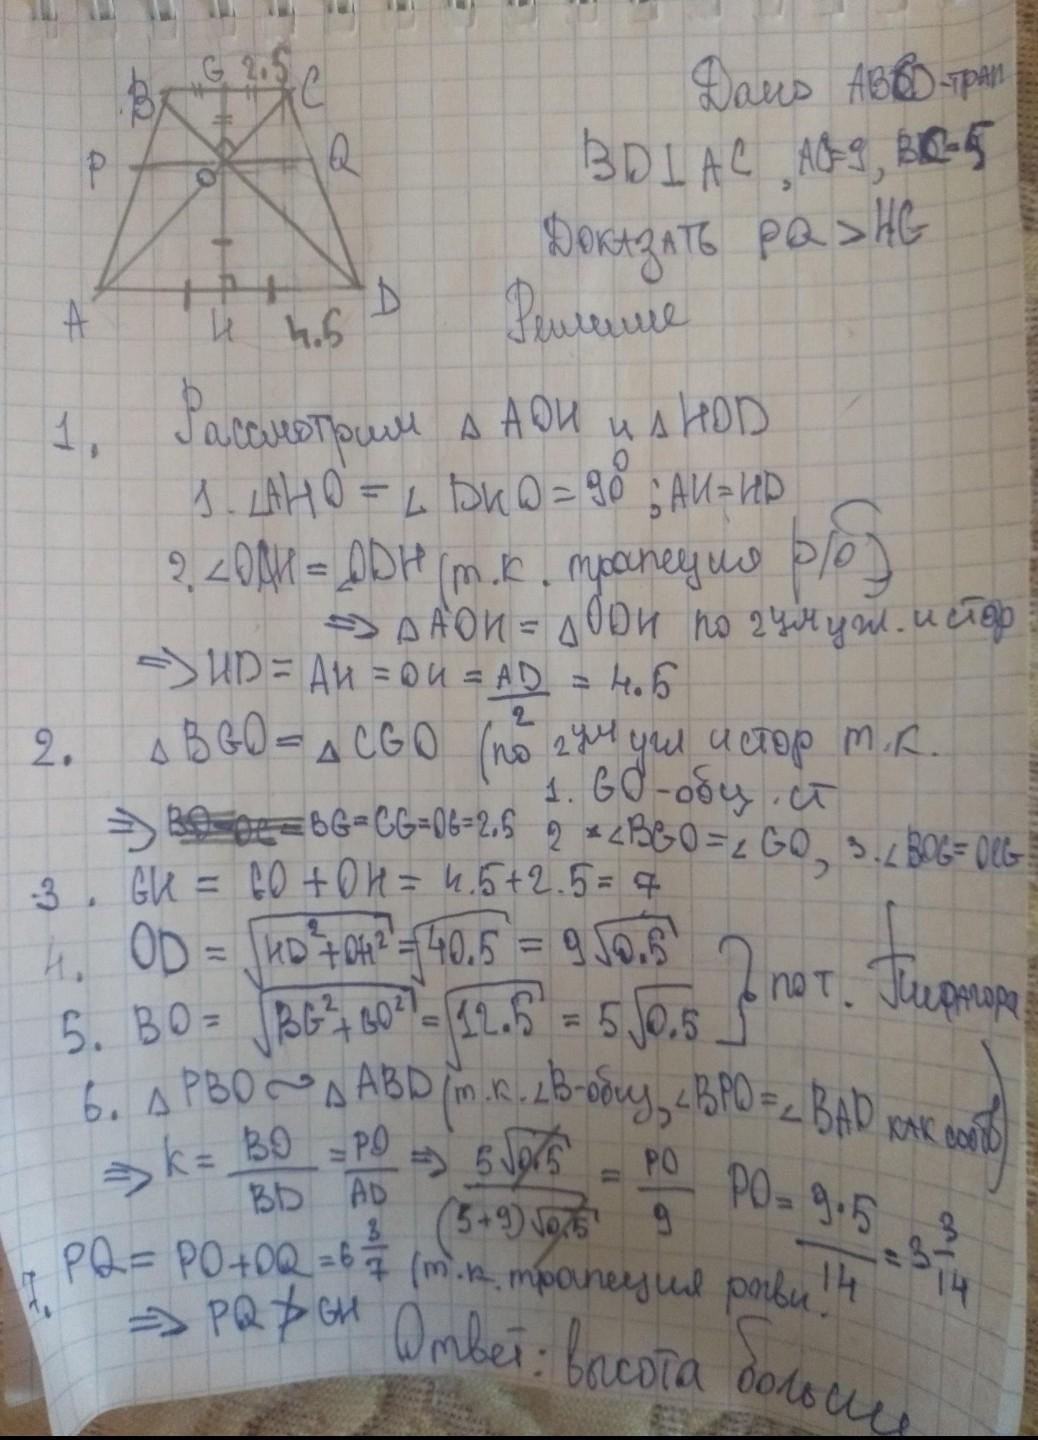 G 2.5
B C
P O Q
A H 4.5 D
Дано ABCD-трап
BD⊥AC, AD=9, BC=5
Доказать PQ > HG
Решение
1. Рассмотрим △AOH и △HOD
1. ∠AHO = ∠DHO = 90°; AH=HD
2. ∠OAH = ∠ODH (т.к. трапеция р/б)
⇒ △AOH = △ODH по 2 ум угл. и стор
⇒ HD = AH = OH = AD/2 = 4.5
2. △BGO = △CGO (по 2 ум угл и стор т.к.
1. GO-общ. ст
⇒ BG=CG=OG=2.5 2 ∠BGO=∠GO, 3. ∠BOG=OCG
3. GH = GO + OH = 4.5+2.5 = 7
4. OD = √HD²+OH² = √40.5 = 9√0.5
5. BO = √BG²+GO² = √12.5 = 5√0.5 } по т. Пифагора
6. △PBO ∾ △ABD (т.к. ∠B-общ, ∠BPO = ∠BAD как соотв)
⇒ k = BO/BD = PO/AD ⇒ 5√0.5/(5+9)√0.5 = PO/9 PO = 9·5/14 = 3 3/14
7. PQ = PO+OQ = 6 3/7 (т.к. трапеция равн.
⇒ PQ ≯ GH
Ответ: высота больше